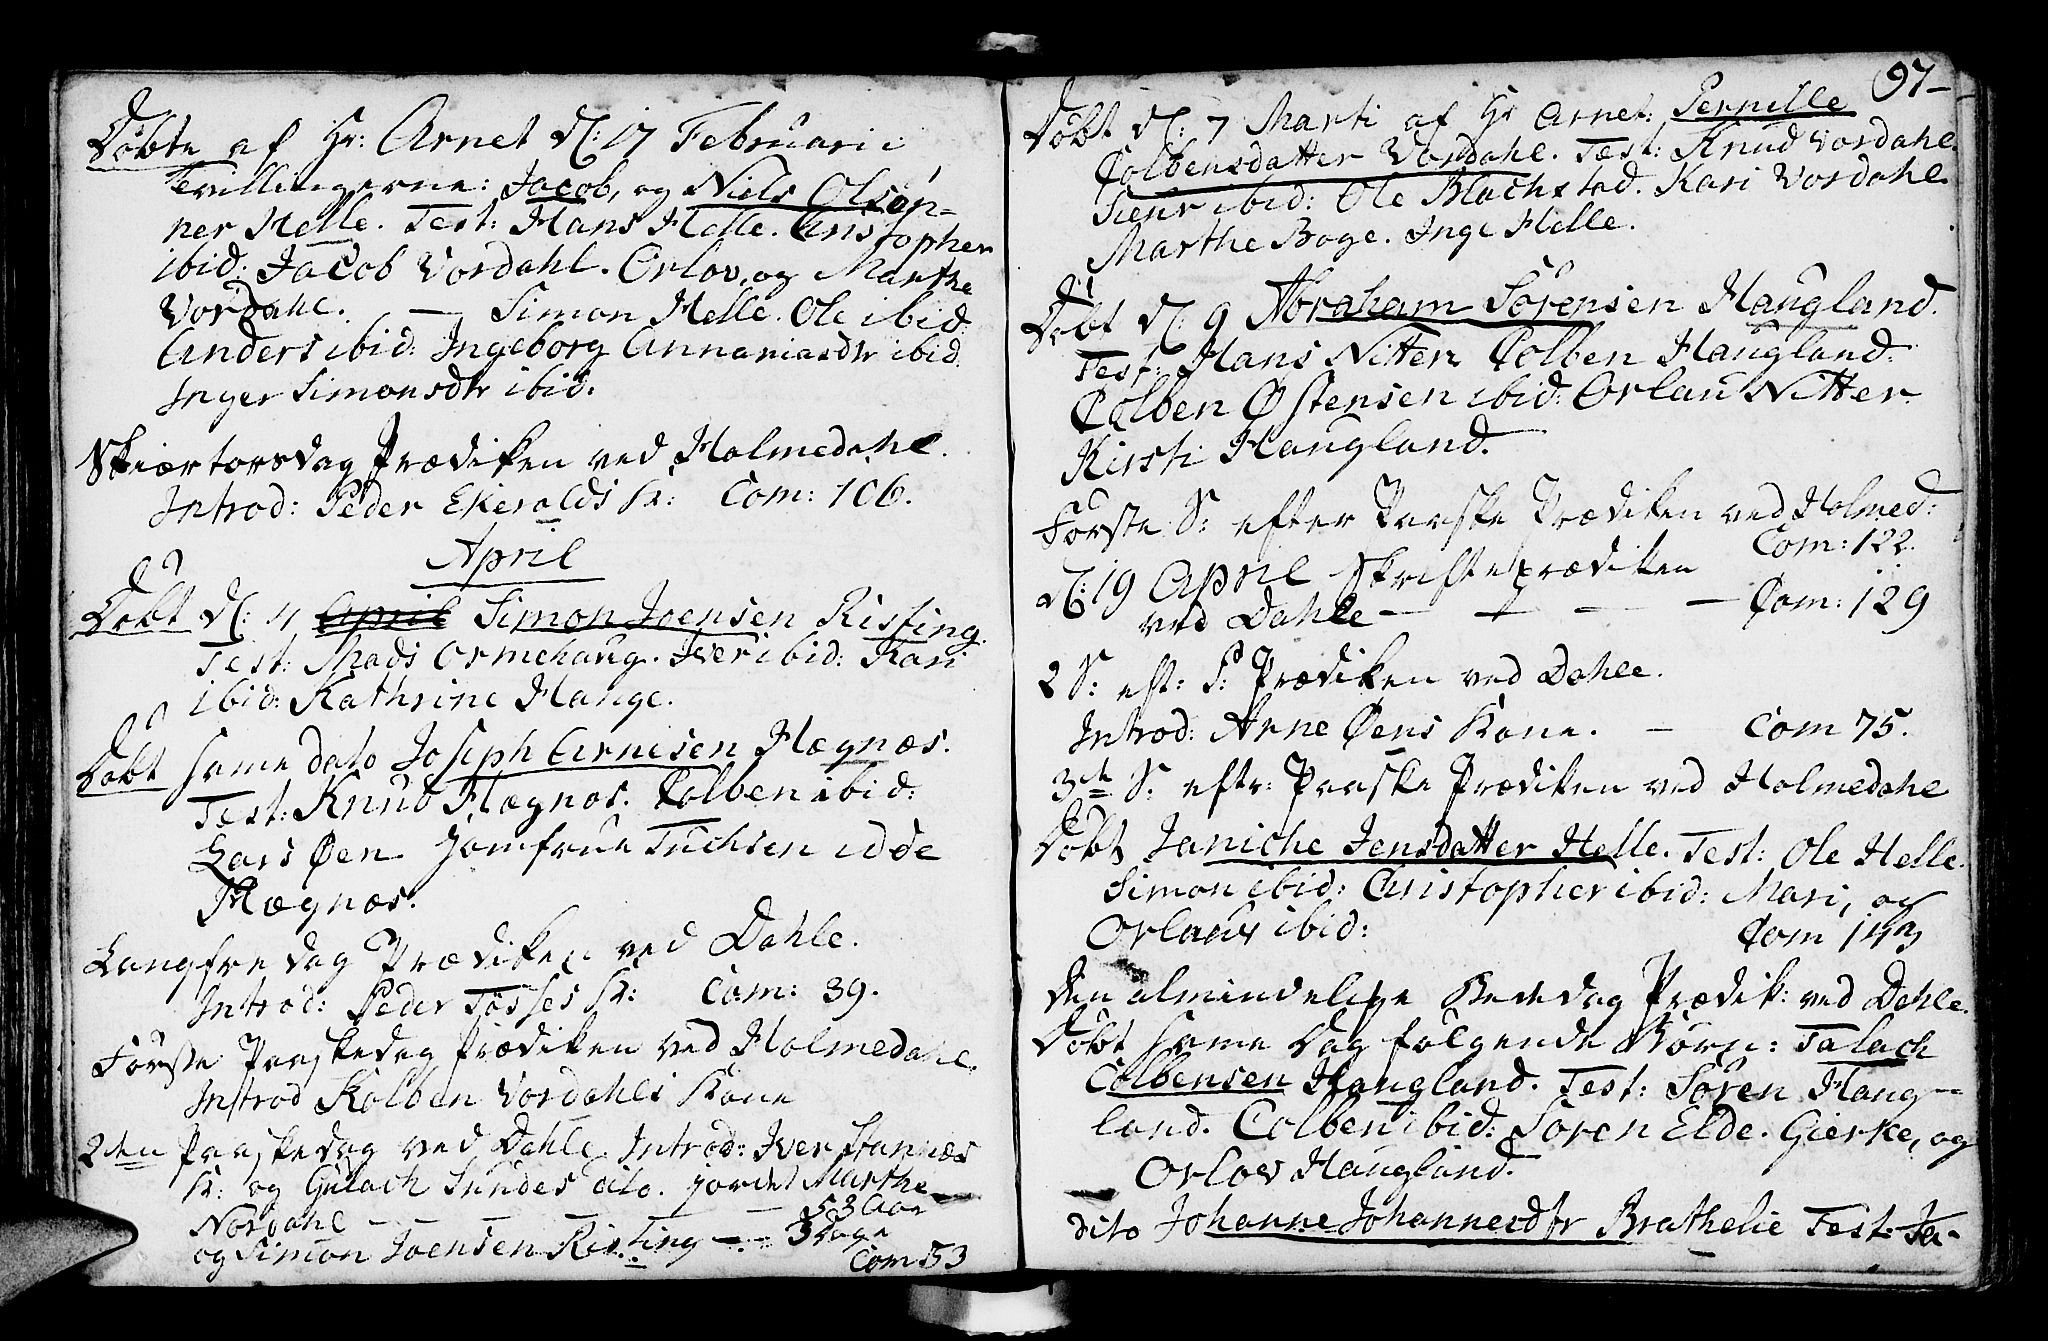 Döbte af Hr: Arnet d: 17 Februarii
Tevillingerne: Jacob, og Niels Olsön-
ner Helle. Test: Hans Helle. Christopher
ibid: Jacob Vordahl. Orlov, og Marthe
Vordahl. — Simon Helle. Ole ibid:
Anders ibid: Ingeborg Annaniasdtr ibid.
Inger Simonsdtr ibid:
Skiærtorsdag Prædiken ved Holmedahl.
Introd: Peder Ekeralds K: Com: 106.
April
Döbt d: 4 April Simon Joensen Risting.
Test: Mads Ormehaug. Iver ibid: Kari
ibid: Kathrine Hauge.
Döbt samme dato Joseph Arnesen Hægnæs.
Test: Knud Hægnæs. Colben ibid:
Lars Øen. Jomfrue Tuchsen
Hægnæs.
Langfredag Prædiken ved Dahle.
Introd: Peder Tösses K: Com: 39.
Förste Paaskedag Prædiken ved Holmedahl.
Introd Kolben Vordahls Kone
2den Paaskedag ved Dahle Introd: Iver Stannæs
K: og Gulach Sundes dito. Jordet Marthe
Nordahl — — — 53 Aar
og Simon Joensen Risting — 3 Dage
Com: 53
97
Döbt d: 7 Marti af Hr Arnet: Pernille
Colbensdatter Vordahl. Test: Knud Vordahl.
Siur ibid: Ole Blachstad. Kari Vordahl.
Marthe Boge. Inge Helle.
Döbt d: 9 Abraham Sörensen Haugland.
Test: Hans Nitter Colben Haugland.
Colben Østensen ibid: Orlau Nitter.
Kirsti Haugland.
Förste S: efter Paaske Prædiken ved Holmed:
Com: 122.
d: 19 April Skrifteprædiken
ved Dahle — — — — Com: 129
2 S: eft: P: Prædiken ved Dahle.
Introd: Arne Øens Kone. — Com 75.
3de S: eftr: Paaske Prædiken ved Holmedahl
Döbt Janiche Jensdatter Helle. Test: Ole Helle.
Simon ibid: Christopher ibid: Mari, og
Orlaug ibid:
Den almindelige Bededag Prædik: ved Dahle.
Döbt samme Dag fölgende Börn: Talach
Colbensen Haugland. Test: Sören Haug-
land. Colben ibid: Sören Elde. Gierke, og
Orlov Haugland.
dito Johanne Johannesdtr Brathelie Test: Ja-